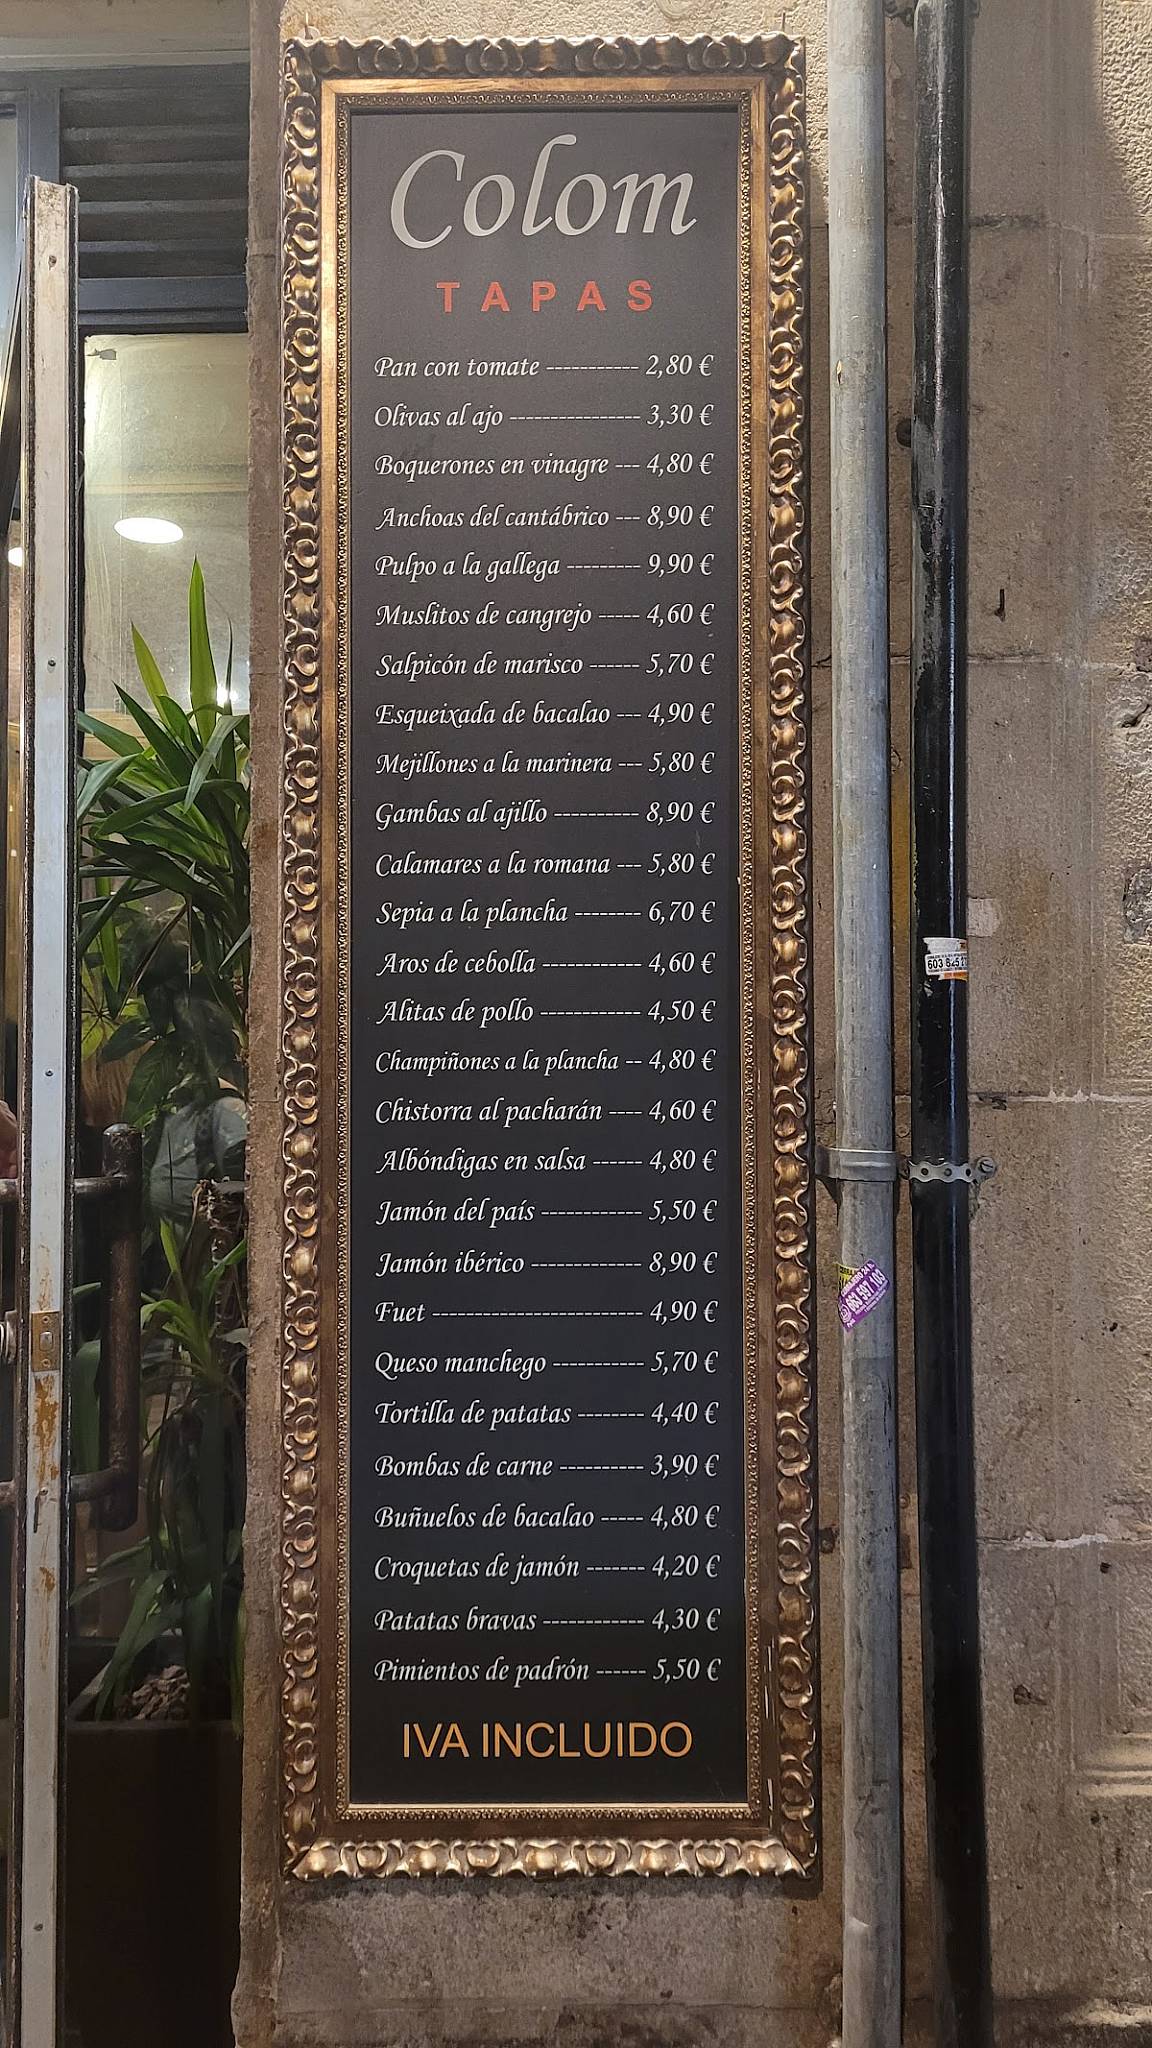 Colom
TAPAS
Pan con tomate ----------- 2,80 €
Olivas al ajo ---------------- 3,30 €
Boquerones en vinagre --- 4,80 €
Anchoas del cantábrico --- 8,90 €
Pulpo a la gallega --------- 9,90 €
Muslitos de cangrejo ----- 4,60 €
Salpicón de marisco ------ 5,70 €
Esqueixada de bacalao --- 4,90 €
Mejillones a la marinera --- 5,80 €
Gambas al ajillo ---------- 8,90 €
Calamares a la romana --- 5,80 €
Sepia a la plancha -------- 6,70 €
Aros de cebolla ------------ 4,60 €
Alitas de pollo ------------ 4,50 €
Champiñones a la plancha -- 4,80 €
Chistorra al pacharán ---- 4,60 €
Albóndigas en salsa ------ 4,80 €
Jamón del país ------------ 5,50 €
Jamón ibérico ------------- 8,90 €
Fuet ------------------------- 4,90 €
Queso manchego ----------- 5,70 €
Tortilla de patatas -------- 4,40 €
Bombas de carne ---------- 3,90 €
Buñuelos de bacalao ----- 4,80 €
Croquetas de jamón ------- 4,20 €
Patatas bravas ------------ 4,30 €
Pimientos de padrón ------ 5,50 €
IVA INCLUIDO
603 825
663 597 103